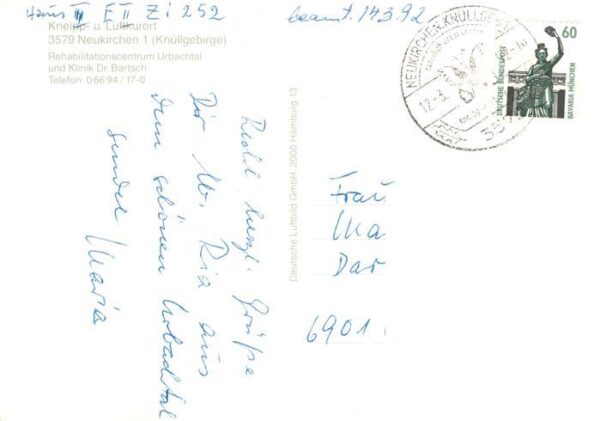 Haus II E II Zi 252
Kneipp- u. Luftkurort
3579 Neukirchen 1 (Knüllgebirge)
Rehabilitationszentrum Urbachtal
und Klinik Dr. Bartsch
Telefon: 0 66 94 / 17-0
beamt. 14.3.92
Recht herzl. Grüße
Dir lb. Ria aus
dem schönen Urbachtal
sendet Maria
Deutsche Luftbild GmbH, 2000 Hamburg 13
NEUKIRCHEN, KNÜLLGEB
12.-3.
35
60
DEUTSCHE BUNDESPOST
BAVARIA MÜNCHEN
Frau
Dar
6901